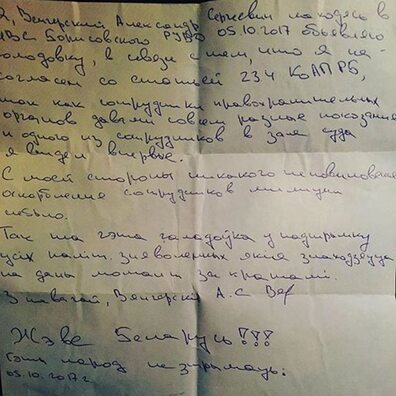 Я, Венгерский Александр Сергеевич находясь в
ИВС Борисовского РУВД 05.10.2017 объявляю
голодовку, в связи с тем, что я не
согласен со статьей 23.4 КоАП РБ,
так как сотрудники правохранительных
органов давали совсем разные показания
и одного из сотрудников в зале суда
я видел впервые.
С моей стороны никакого неповиновения
оскорбление сотрудников милиции
небыло.
Так та гэта галадоўка у падтрымку
усіх паліт. зняволеных якія знаходзяцца
на дань момант за кратамі.
З павагай, Венгерский А.С Вег
Жэве Беларусь!!!
гэты народ не
05.10.2017г.